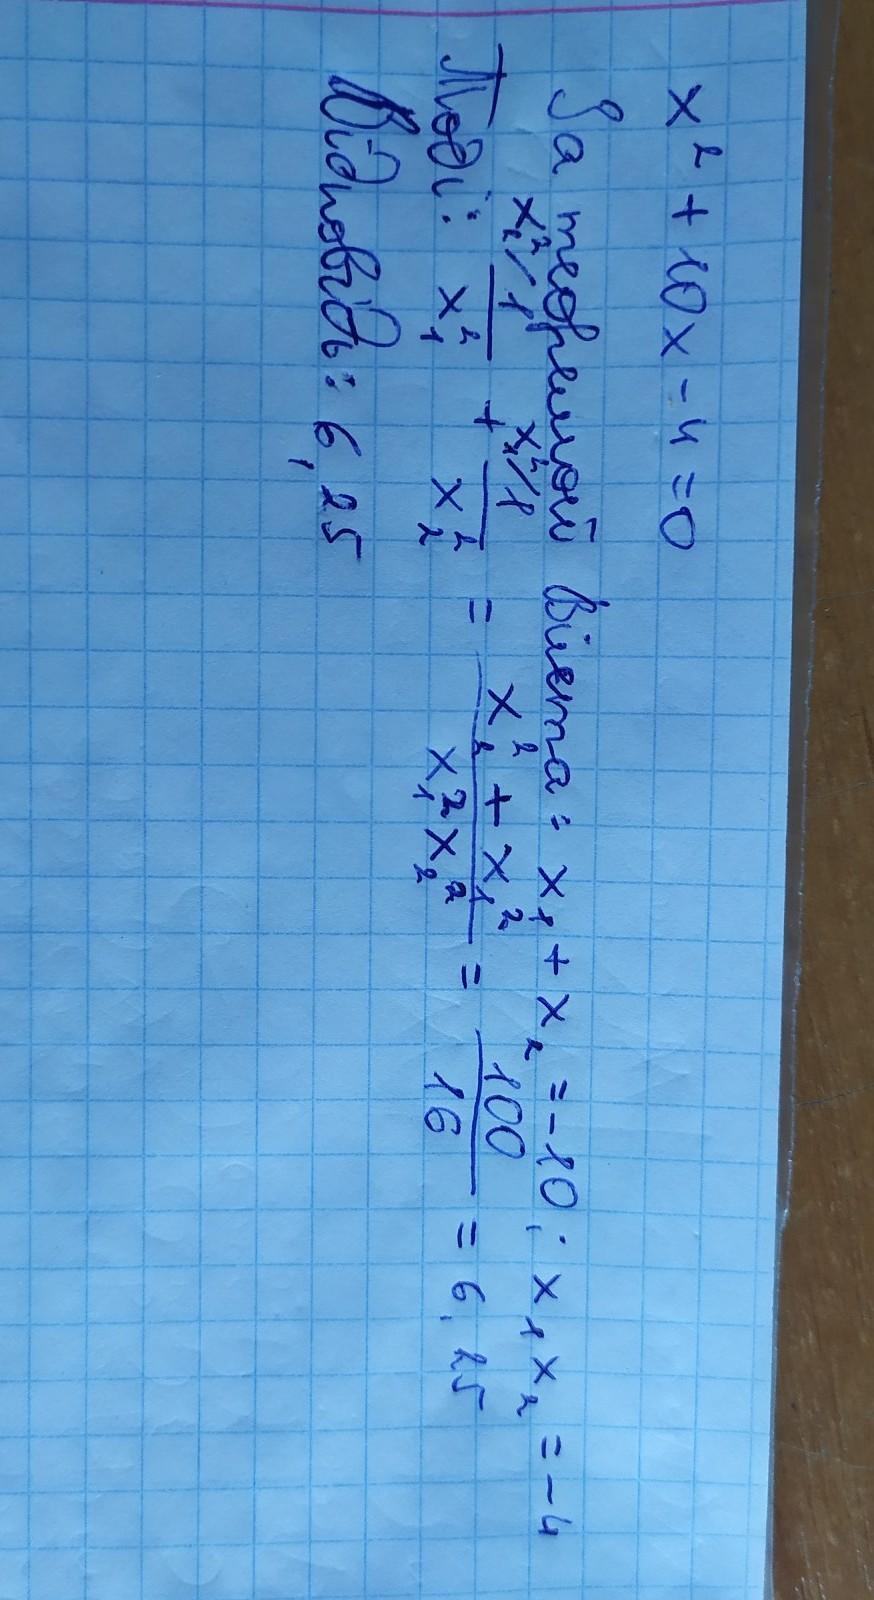 x² + 10x - 4 = 0
За теоремой Вієта: x₁ + x₂ = -10; x₁x₂ = -4
Тоді: x₂²/1/x₁² + x₁²/1/x₂² = (x₂² + x₁²)/(x₁²x₂²) = 100/16 = 6,25
Відповідь: 6,25